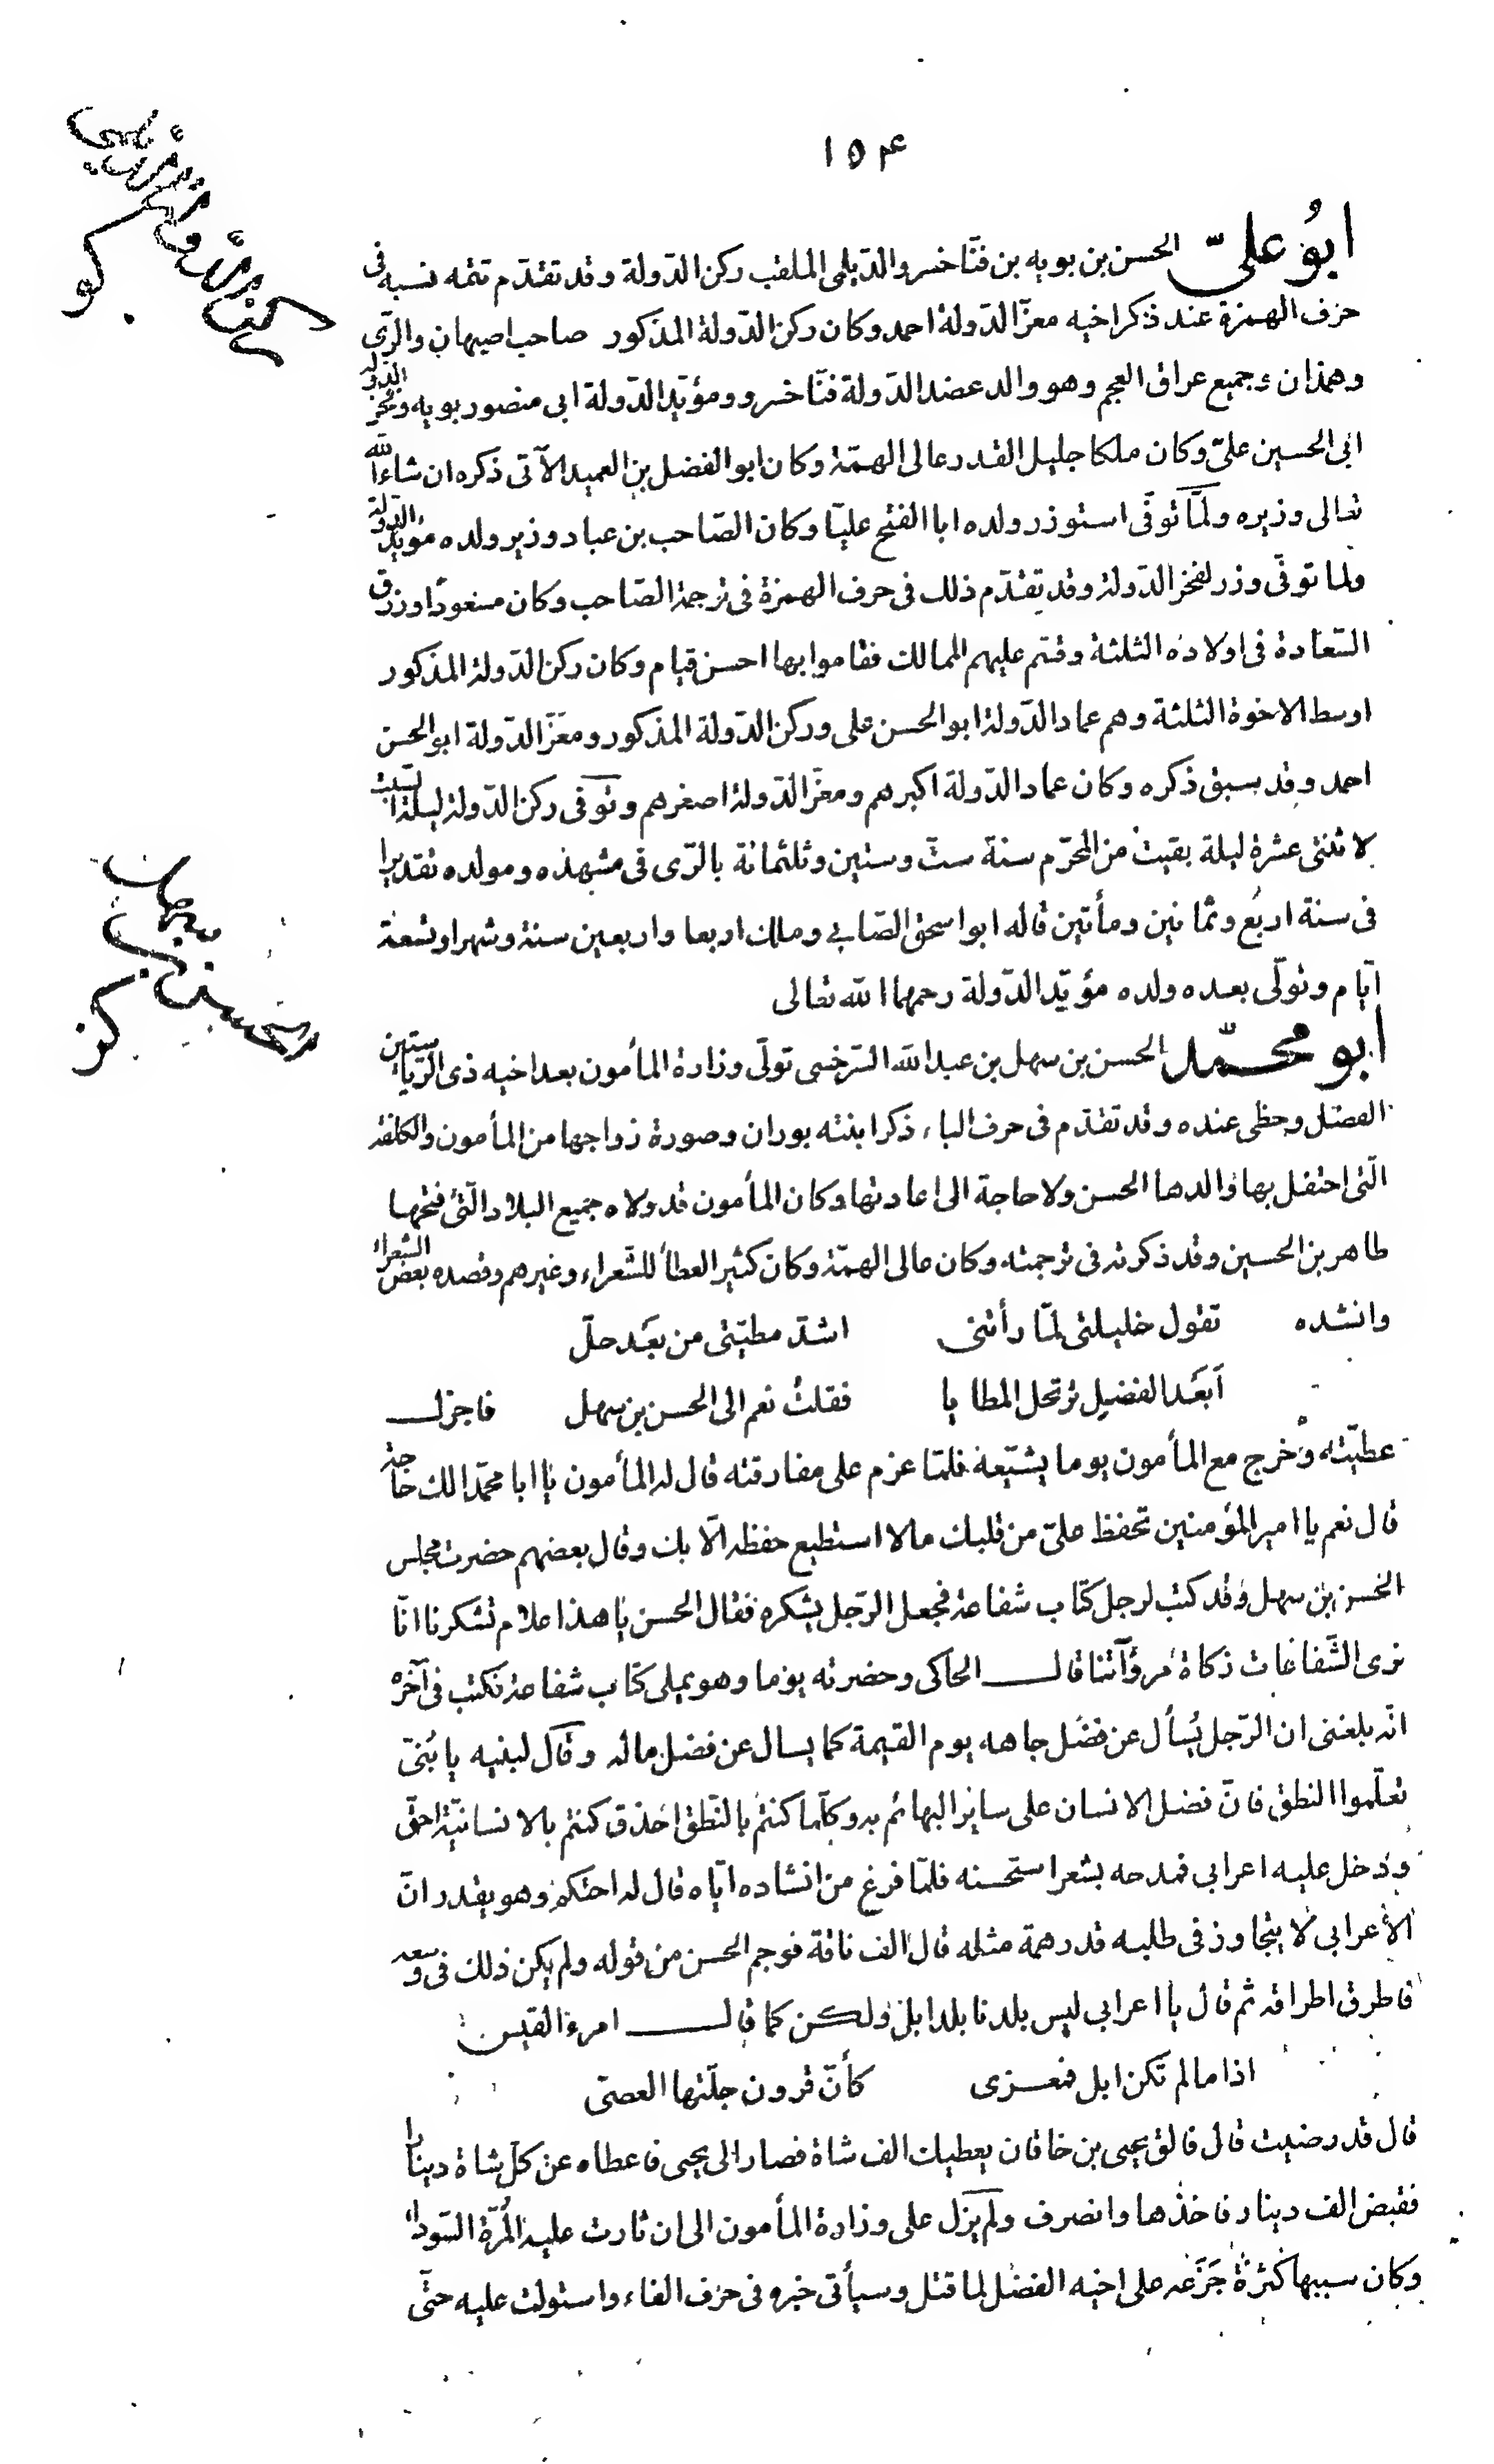 ١٥٤
ابو علىّ الحسن بن بويه بن فنّاخسرو الدّيلمى الملقب ركن الدّولة وقد تقدّم تتمّه نسبه فى
حرف الهمزة عند ذكر اخيه معزّ الدّولة احمد وكان ركن الدّولة المذكور صاحب اصبهان والرّى
وهمذان وجميع عراق العجم وهو والد عضد الدّولة فنّاخسرو ومؤيّد الدّولة ابى منصور بويه وفخر الدّولة
ابى الحسين علىّ وكان ملكا جليل القدر عالى الهمّة وكان ابو الفضل بن العميد الآتى ذكره ان شاء الله
تعالى وزيره ولمّا توفّى استوزر ولده ابا الفتح عليّا وكان الصّاحب بن عباد وزير ولده مؤيّد الدّولة
ولما توفّى وزر لفخر الدّولة وقد تقدّم ذلك فى حرف الهمزة فى ترجمة الصّاحب وكان مسعودًا ورزق
السّعادة فى اولاده الثلثة وقسّم عليهم الممالك فقاموا بها احسن قيام وكان ركن الدّولة المذكور
اوسط الاخوة الثلثة وهم عماد الدّولة ابو الحسن على وركن الدّولة المذكور ومعزّ الدّولة ابو الحسن
احمد وقد سبق ذكره وكان عماد الدّولة اكبرهم ومعزّ الدّولة اصغرهم وتوفّى ركن الدّولة ليلة السّبت
لاثنتى عشرة ليلة بقيت من المحرّم سنة ستّ وستين وثلثمائة بالرّى فى مشهده ومولده تقديرا
فى سنة اربع وثمانين ومأتين قاله ابو اسحق الصّابى وملك اربعا واربعين سنة وشهرا وتسعة
ايّام وتولّى بعده ولده مؤيّد الدّولة رحمهما الله تعالى
ابو محمّد الحسن بن سهل بن عبد الله السّرخسى تولّى وزارة المأمون بعد اخيه ذى الرّياستين
الفضل وحظى عنده وقد تقدّم فى حرف الباء ذكر ابنته بوران وصورة زواجها من المأمون والكلفة
الّتى احتفل بها والدها الحسن ولا حاجة الى اعادتها وكان المأمون قد ولاه جميع البلاد الّتى فتحها
طاهر بن الحسين وقد ذكرته فى ترجمته وكان عالى الهمّة وكان كثير العطأ للشّعراء وغيرهم وقصده بعض الشعراء
وانشده تقول خليلتى لمّا رأتنى اشدّ مطيّتى من بعد حلّ
أبعد الفضل ترتحل المطايا فقلت نعم الى الحسن بن سهل فاجزل
عطيّته وخرج مع المأمون يوما يشيّعه فلمّا عزم على مفارقته قال له المأمون يا ابا محمّد الك حاجة
قال نعم يا امير المؤمنين تحفظ علىّ من قلبك ما لا استطيع حفظه الّا بك وقال بعضهم حضرت مجلس
الحسن بن سهل وقد كتب لرجل كتاب شفاعة فجعل الرّجل يشكره فقال الحسن يا هذا علام تشكرنا انّا
نرى الشّفاعات زكاة مروآتنا قال الحاكى وحضرته يوما وهو يملى كتاب شفاعة فكتب فى آخره
انّه بلغنى ان الرّجل يُسأل عن فضل جاهه يوم القيمة كما يسال عن فضل ماله وقال لبنيه يا بنىّ
تعلّموا النطق فانّ فضل الانسان على ساير البهائم به وكلّما كنتم بالنّطق احذق كنتم بالانسانيّة احقّ
ودخل عليه اعرابى فمدحه بشعر استحسنه فلمّا فرغ من انشاده ايّاه قال له احتكم وهو يقدر انّ
الأعرابى لا يتجاوز فى طلبه قدر همة مثله قال الف ناقة فوجم الحسن من قوله ولم يكن ذلك فى وسعه
فاطرق اطراقه ثم قال يا اعرابى ليس بلدنا بلد ابل ولكن كما قال امرء القيس
اذا ما لم تكن ابل فمعزى كأنّ قرون جلّتها العصىّ
قال قد رضيت قال فالق يحيى بن خاقان يعطيك الف شاة فصار الى يحيى فاعطاه عن كلّ شاة دينارا
فقبض الف دينار فاخذها وانصرف ولم يزل على وزارة المأمون الى ان ثارت عليه المُرّة السّوداء
وكان سببها كثرة جزعه على اخيه الفضل لما قتل وسيأتى خبره فى حرف الفاء واستولت عليه حتّى
ركن الدولة الديلمى
كو
الحسن بن سهل
كز